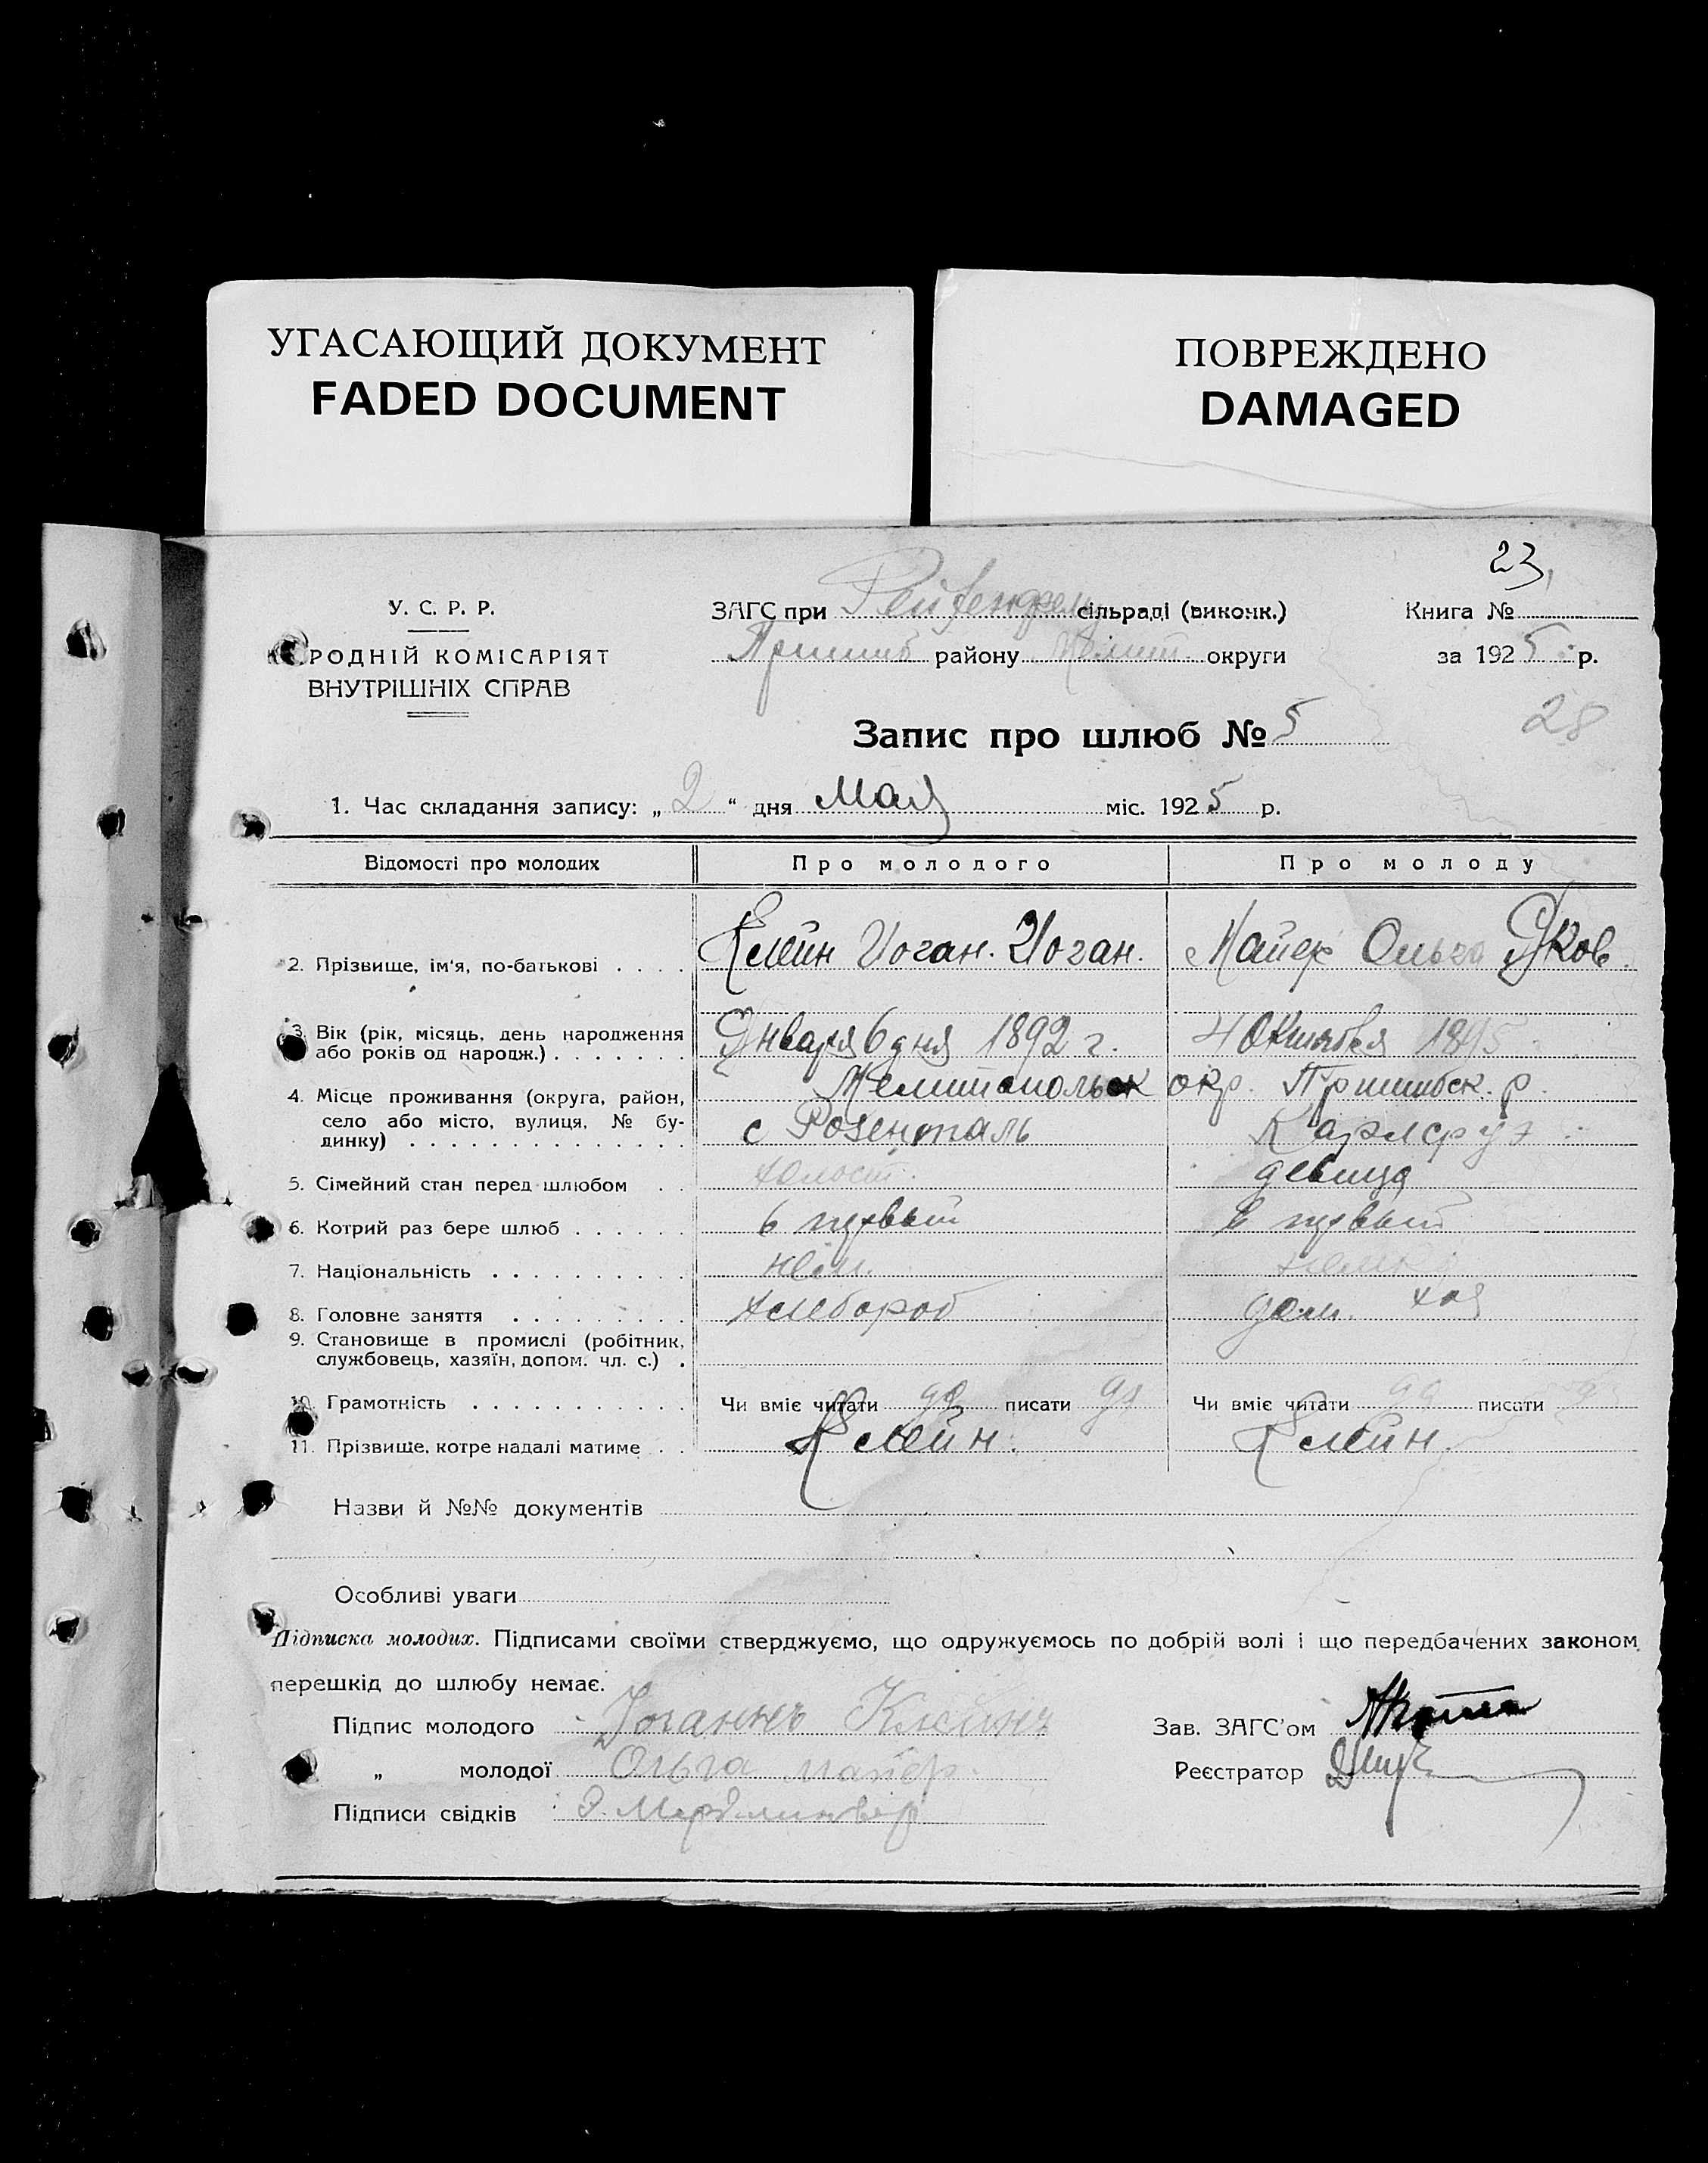 УГАСАЮЩИЙ ДОКУМЕНТ
FADED DOCUMENT
ПОВРЕЖДЕНО
DAMAGED
23,
У. С. Р. Р.
РОДНІЙ КОМІСАРІЯТ
ВНУТРІШНІХ СПРАВ
ЗАГС при Рейхенфельд сільраді (виконк.)
Пришиб району Мелит. округи
Книга №
за 1925 р.
28
Запис про шлюб № 5
1. Час складання запису: „ 2 “ дня Мая міс. 1925 р.
Відомості про молодих Про молодого Про молоду
2. Прізвище, ім'я, по-батькові . . . . Клейн Иоган. Иоган. Майер Ольга Яков.
3. Вік (рік, місяць, день народження або років од народж.) . . . . . . . Января 6 дня 1892 г. 4 Октября 1895
Мелитопольск окр. Пришибск. р.
4. Місце проживання (округа, район, село або місто, вулиця, № будинку) . . . . . . . . . . . . . . с Розенталь Карлсруэ
5. Сімейний стан перед шлюбом . . холост. девица
6. Котрий раз бере шлюб . . . . . . в первый в первый
7. Національність . . . . . . . . . . нем. немка
8. Головне заняття . . . . . . . . . хлебороб дом. хоз
9. Становище в промислі (робітник, службовець, хазяїн, допом. чл. с.) .
10. Грамотність . . . . . . . . . . . Чи вміє читати да писати да Чи вміє читати да писати да
11. Прізвище, котре надалі матиме . . Клейн. Клейн.
Назви й №№ документів
Особливі уваги
Підписка молодих. Підписами своїми стверджуємо, що одружуємось по добрій волі і що передбачених законом
перешкід до шлюбу немає.
Підпис молодого Иоганнъ Клейнъ
„ молодої Ольга Майер.
Підписи свідків
Зав. ЗАГС'ом
Реєстратор